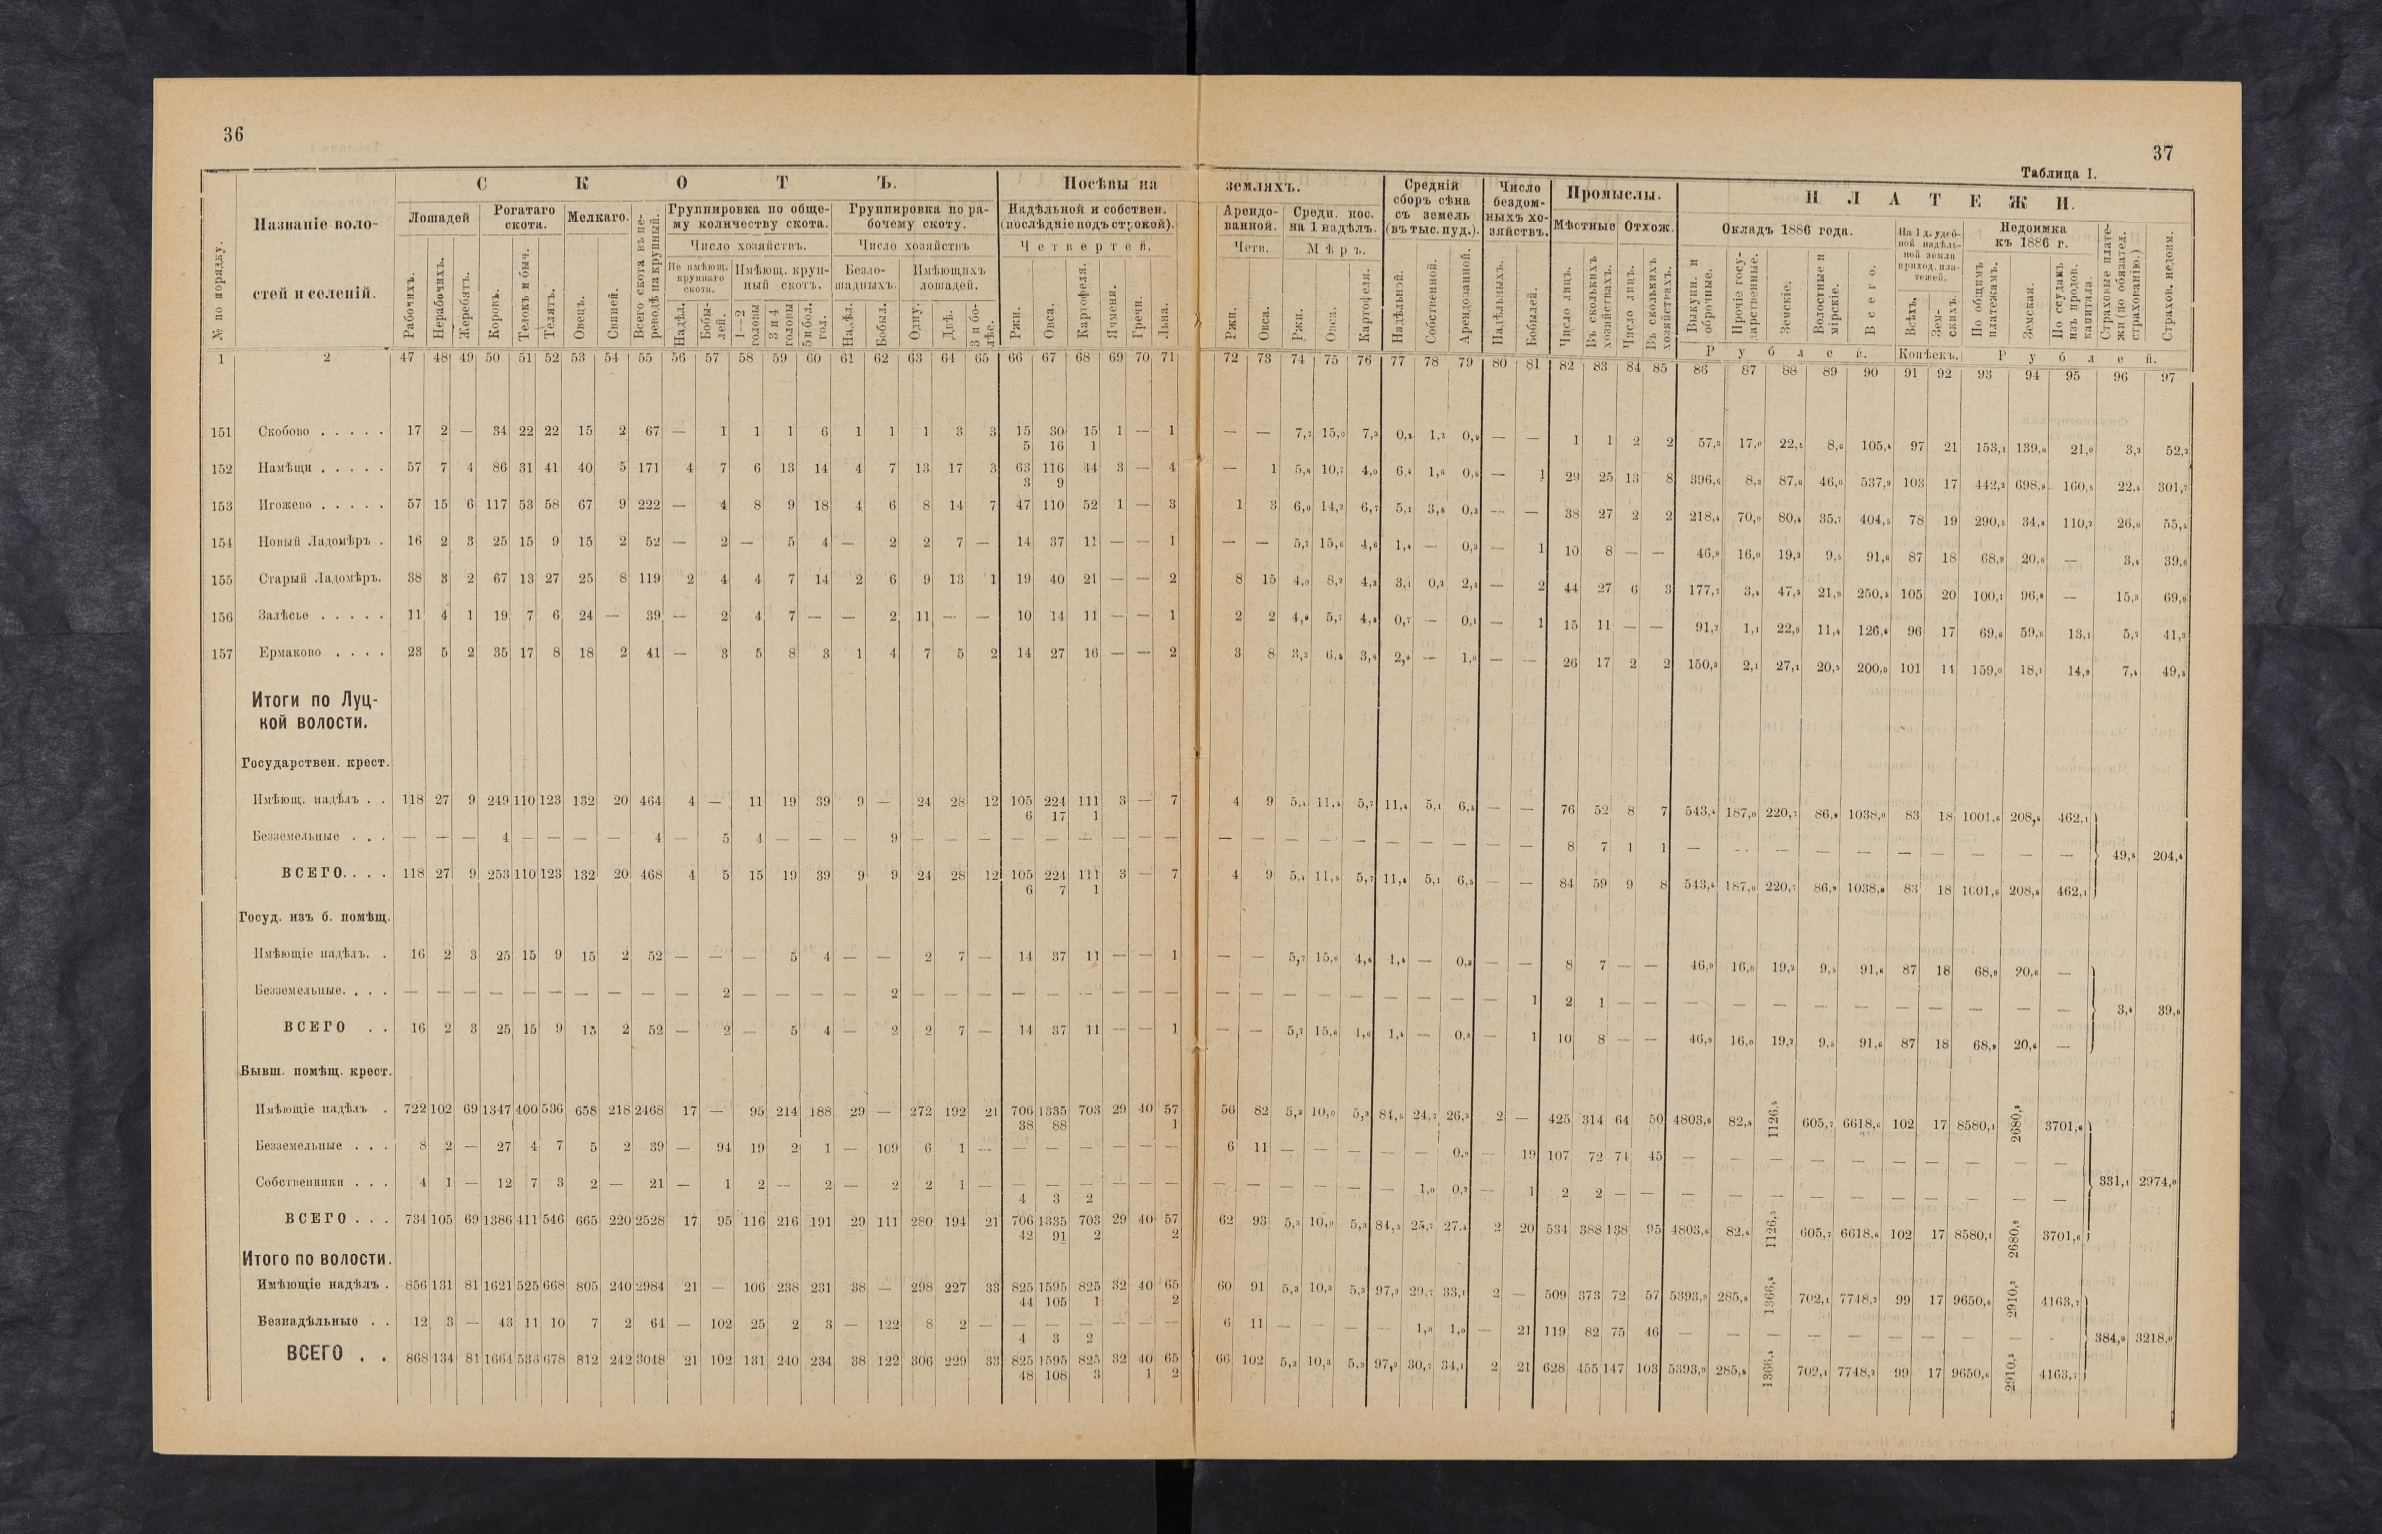 36
37
Таблица I.
№ по порядку.
Названіе воло-
стей и селеній.
С К О Т Ъ.
Лошадей
Рогатаго
скота.
Мелкаго.
Всего скота въ пе-
реводѣ на крупный.
Группировка по обще-
му количеству скота.
Группировка по ра-
бочему скоту.
Число хозяйствъ.
Число хозяйствъ
Не имѣющ.
крупнаго
скота.
Имѣющ. круп-
ный скотъ.
Безло-
шадныхъ.
Имѣющихъ
лошадей.
Рабочихъ.
Нерабочихъ.
Жеребятъ.
Коровъ.
Телокъ и быч.
Телятъ.
Овецъ.
Свиней.
Надѣл.
Бобы-
лей.
1—2
головы
3 и 4
головы
5 и бол.
гол.
Надѣл.
Бобыл.
Одну.
Двѣ.
3 и бо-
лѣе.
Посѣвы на
земляхъ.
Надѣльной и собствен.
(послѣдніе подъ строкой).
Четвертей.
Ржи.
Овса.
Картофеля.
Ячменя.
Гречи.
Льна.
Арендо-
ванной.
Четв.
Ржи.
Овса.
Средн. пос.
на 1 надѣлъ.
Мѣръ.
Ржи.
Овса.
Картофеля.
Средній
сборъ сѣна
съ земель
(въ тыс. пуд.).
Надѣльной.
Собственной.
Арендованной.
Число
бездом-
ныхъ хо-
зяйствъ.
Надѣльныхъ.
Бобылей.
Промыслы.
Мѣстные
Отхож.
Число лицъ.
Въ сколькихъ
хозяйствахъ.
Число лицъ.
Въ сколькихъ
хозяйстрахъ.
П Л А Т Е Ж И.
Окладъ 1886 года.
Выкупн. и
оброчные.
Прочіе госу-
дарственные.
Земскіе.
Волостные и
мірскіе.
Всего.
На 1 д. удоб-
ной надѣль-
ной земли
приход. пла-
тежей.
Всѣхъ.
Зем-
скихъ.
Недоимка
къ 1886 г.
По общимъ
платежамъ.
Земская.
По ссудамъ
изъ продов.
капитала.
Страховые плате-
жи (по обязател.
страхованію.)
Страхов. недоим.
Рублей.
Копѣекъ.
Рублей.
1 2 47 48 49 50 51 52 53 54 55 56 57 58 59 60 61 62 63 64 65 66 67 68 69 70 71 72 73 74 75 76 77 78 79 80 81 82 83 84 85 86 87 88 89 90 91 92 93 94 95 96 97
151 Скобово . . . . . 17 2 — 34 22 22 15 2 67 — 1 1 1 6 1 1 1 3 3 15 30 15 1 — 1 — — 7,7 15,0 7,3 0,8 1,2 0,9 — — 1 1 2 2 57,3 17,0 22,5 8,6 105,4 97 21 153,1 139,0 21,0 3,2 52,2
5 16 1
152 Намѣщи . . . . . 57 7 4 86 31 41 40 5 171 4 7 6 13 14 4 7 13 17 3 63 116 44 3 — 4 — 1 5,8 10,7 4,0 6,4 1,6 0,8 — 1 29 25 13 8 396,6 8,3 87,0 46,0 537,9 103 17 442,2 698,9 160,5 22,4 301,7
3 9
153 Игожево . . . . . 57 15 6 117 53 58 67 9 222 — 4 8 9 18 4 6 8 14 7 47 110 52 1 — 3 1 3 6,0 14,2 6,7 5,1 3,8 0,3 — — 38 27 2 2 218,4 70,0 80,4 35,7 404,5 78 19 290,5 34,8 110,2 26,0 55,4
154 Новый Ладомѣръ . 16 2 3 25 15 9 15 2 52 — 2 — 5 4 — 2 2 7 — 14 37 11 — — 1 — — 5,7 15,6 4,6 1,4 — 0,3 — 1 10 8 — — 46,9 16,0 19,2 9,5 91,6 87 18 68,9 20,6 — 3,4 39,6
155 Старый Ладомѣръ. 38 3 2 67 13 27 25 8 119 2 4 4 7 14 2 6 9 13 1 19 40 21 — — 2 8 15 4,0 8,2 4,3 3,1 0,2 2,5 — 2 44 27 6 3 177,7 3,4 47,5 21,9 250,5 105 20 100,1 96,8 — 15,3 69,9
156 Залѣсье . . . . . 11 4 1 19 7 6 24 — 39 — 2 4 7 — — 2 11 — — 10 14 11 — — 1 2 2 4,0 5,7 4,3 0,7 — 0,1 — 1 15 11 — — 91,2 1,1 22,9 11,4 126,6 96 17 69,6 59,0 13,1 5,2 41,3
157 Ермаково . . . . 23 5 2 35 17 8 18 2 41 — 3 5 8 3 1 4 7 5 2 14 27 16 — — 2 3 8 3,3 6,4 3,9 2,9 — 1,0 — — 26 17 2 2 150,3 2,1 27,1 20,5 200,0 101 14 159,0 18,1 14,9 7,4 49,5
Итоги по Луц-
кой волости.
Государствен. крест.
Имѣющ. надѣлъ . . 118 27 9 249 110 123 132 20 464 4 — 11 19 39 9 — 24 28 12 105 224 111 3 — 7 4 9 5,4 11,5 5,7 11,4 5,1 6,5 — — 76 52 8 7 543,4 187,0 220,7 86,9 1038,0 83 18 1001,6 208,8 462,1
6 17 1
Безземельные . . . — — — 4 — — — — 4 — 5 4 — — — 9 — — — — — — — — — — — — — — — — — — — 8 7 1 1 — — — — — — — — — — 49,8 204,4
ВСЕГО. . . . 118 27 9 253 110 123 132 20 468 4 5 15 19 39 9 9 24 28 12 105 224 111 3 — 7 4 9 5,4 11,5 5,7 11,4 5,1 6,5 — — 84 59 9 8 543,4 187,0 220,7 86,9 1038,0 83 18 1001,6 208,8 462,1
6 7 1
Госуд. изъ б. помѣщ.
Имѣющіе надѣлъ. . 16 2 3 25 15 9 15 2 52 — — — 5 4 — — 2 7 — 14 37 11 — — 1 — — 5,7 15,6 4,6 1,4 — 0,3 — — 8 7 — — 46,9 16,0 19,2 9,5 91,6 87 18 68,9 20,6 —
Безземельные. . . . — — — — — — — — — — 2 — — — — 2 — — — — — — — — — — — — — — — — — — 1 2 1 — — — — — — — — — — — — 3,4 39,6
ВСЕГО . . 16 2 3 25 15 9 15 2 52 — 2 — 5 4 — 2 2 7 — 14 37 11 — — 1 — — 5,7 15,6 4,6 1,4 — 0,3 — 1 10 8 — — 46,9 16,0 19,2 9,5 91,6 87 18 68,9 20,6 —
Бывш. помѣщ. крест.
Имѣющіе надѣлъ . 722 102 69 1347 400 536 658 218 2468 17 — 95 214 188 29 — 272 192 21 706 1335 703 29 40 57 56 82 5,3 10,0 5,3 84,5 24,7 26,3 2 — 425 314 64 50 4803,6 82,8 1126,5 605,7 6618,6 102 17 8580,1 2680,9 3701,6
38 88 1
Безземельные . . . 8 2 — 27 4 7 5 2 39 — 94 19 2 1 — 109 6 1 — — — — — — — 6 11 — — — — — 0,9 — 19 107 72 74 45 — — — — — — — — — —
Собственники . . . 4 1 — 12 7 3 2 — 21 — 1 2 — 2 — 2 2 1 — — — — — — — — — — — — — 1,0 0,2 — 1 2 2 — — — — — — — — — — — — 331,1 2974,0
4 3 2
ВСЕГО . . . 734 105 69 1386 411 546 665 220 2528 17 95 116 216 191 29 111 280 194 21 706 1335 703 29 40 57 62 93 5,3 10,0 5,3 84,5 25,7 27,4 2 20 534 388 138 95 4803,6 82,8 1126,5 605,7 6618,6 102 17 8580,1 2680,9 3701,6
42 91 2 2
Итого по волости.
Имѣющіе надѣлъ . 856 131 81 1621 525 668 805 240 2984 21 — 106 238 231 38 — 298 227 33 825 1595 825 32 40 65 60 91 5,3 10,3 5,3 97,3 29,7 33,1 2 — 509 373 72 57 5393,9 285,8 1366,4 702,1 7748,2 99 17 9650,6 2910,3 4163,7
44 105 1 2
Безнадѣльные . . 12 3 — 43 11 10 7 2 64 — 102 25 2 3 — 122 8 2 — — — — — — — 6 11 — — — — 1,0 1,0 — 21 119 82 75 46 — — — — — — — — — — 384,0 3218,0
4 3 2
ВСЕГО . . 868 134 81 1664 536 678 812 242 3048 21 102 131 240 234 38 122 306 229 33 825 1595 825 32 40 65 66 102 5,3 10,3 5,3 97,3 30,7 34,1 2 21 628 455 147 103 5393,9 285,8 1366,4 702,1 7748,2 99 17 9650,6 2910,3 4163,7
48 108 3 1 2